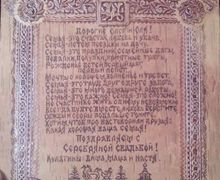 ДОРОГИЕ
СЕМЬЯ-ЭТО СЧАСТЬЕ, ЛЮБОВЬ И УДАЧА,
СЕМЬЯ-ЛЕТОМ ПОЕЗДКИ НА ДАЧУ.
СЕМЬЯ-ЭТО ПРАЗДНИК, СЕМЕЙНЫЕ ДАТЫ,
ПОДАРКИ, ПОКУПКИ, ПРИЯТНЫЕ ТРАТЫ,
РОЖДЕНИЕ ДЕТЕЙ,
ПЕРВЫЙ ЛЕПЕТ,
МЕЧТЫ О ХОРОШЕМ, ВОЛНЕНИЕ И ТРЕПЕТ.
СЕМЬЯ-ЭТО ТРУД, ДРУГ О ДРУГЕ ЗАБОТА,
СЕМЬЯ-ЭТО МНОГО ДОМАШНЕЙ РАБОТЫ.
СЕМЬЯ-ЭТО ВАЖНО!
СЕМЬЯ-ЭТО СЛОЖНО!
НО СЧАСТЛИВО ЖИТЬ ОДНОМУ НЕВОЗМОЖНО!
ВСЕГДА БУДЬТЕ ВМЕСТЕ, ЛЮБОВЬ БЕРЕГИТЕ,
ОБИДЫ И ССОРЫ ПОДАЛЬШЕ ГОНИТЕ,
ХОТИМ, ЧТОБ ПРО ВАС ГОВОРИЛИ ДРУЗЬЯ:
КАКАЯ ХОРОШАЯ ВАША СЕМЬЯ!
ПОЗДРАВЛЯЕМ С
СЕРЕБРЯНОЙ СВАДЬБОЙ!
МАША И НАСТЯ.